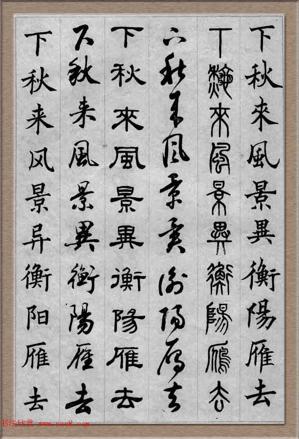 下秋來風景異衡陽雁去
下秋來風景異衡陽雁去
下秋来風景異衡陽雁去
下秋來風景異衡陽雁去
下秋来風景異衡陽雁去
下秋来风景异衡阳雁去